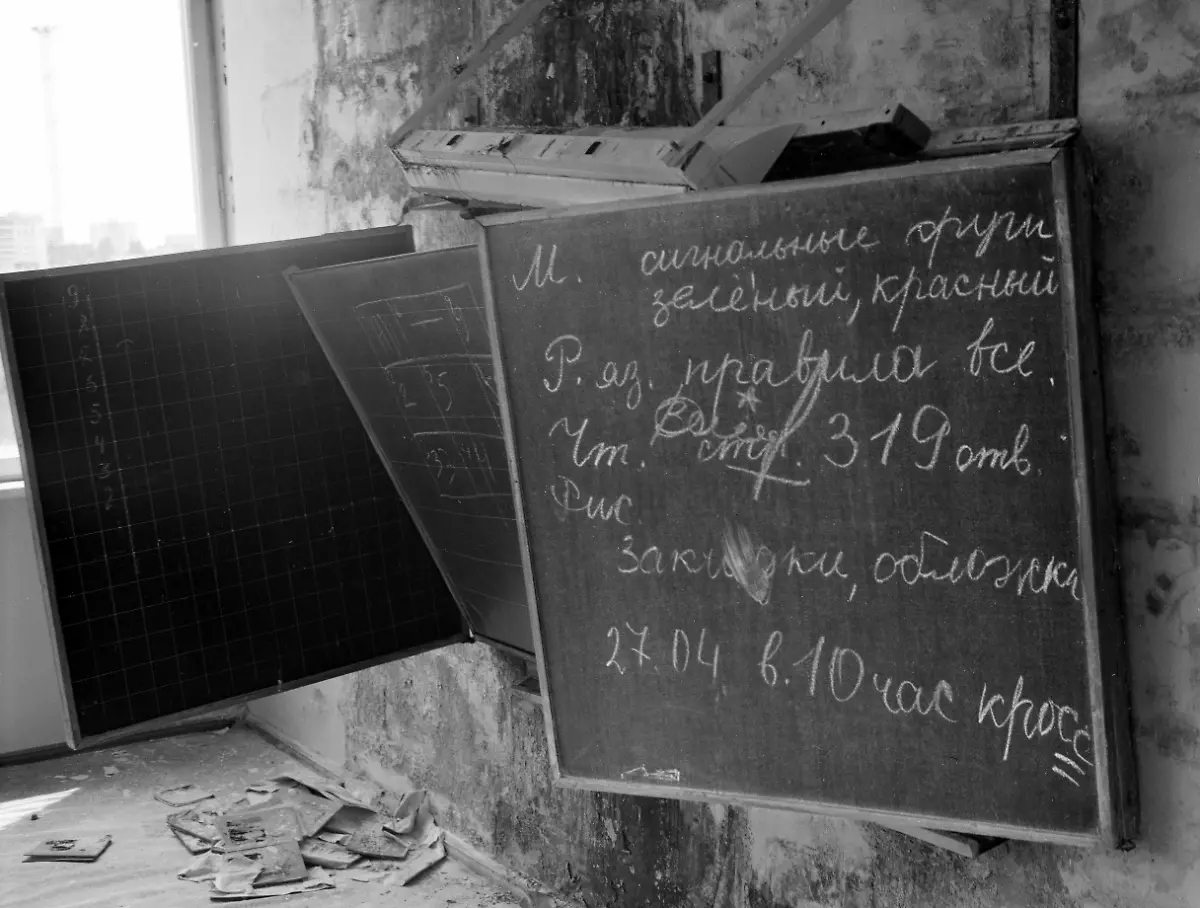 М. сигнальные круги
зелёный, красный
Р. яз. правила все.
Чт. стр. 319 отв.
Рис.
Закладки, обложки
27.04 в 10 час кросс
9
8
7
6
5
4
3
2
35